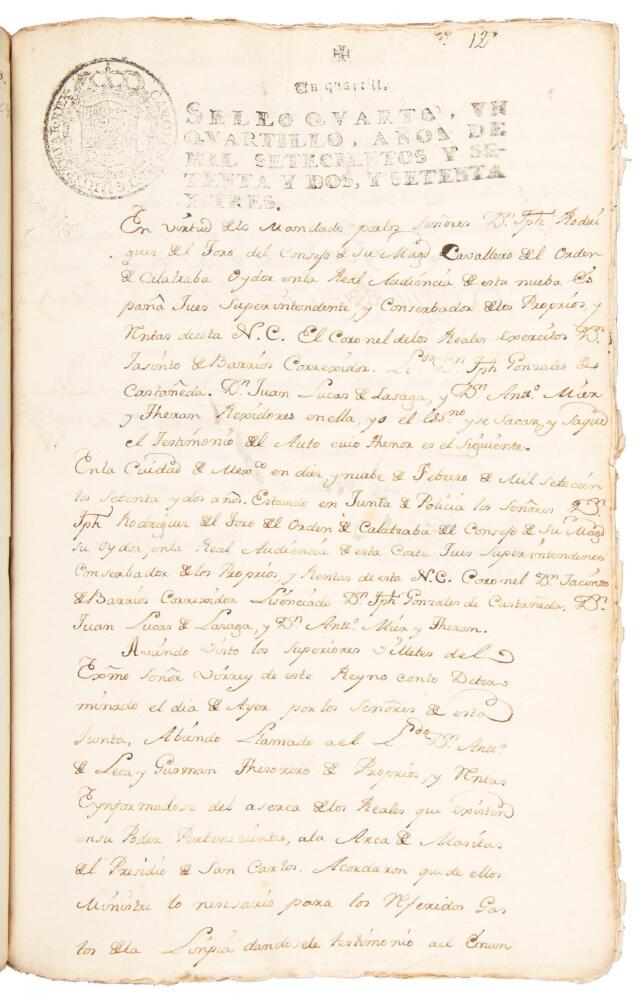 12
Un quartill.
SELLO QVARTO, VN
QVARTILLO, AÑOS DE
MIL SETECIENTOS Y SE-
TENTA Y DOS, Y SETENTA
Y TRES.
En virtud de lo Mandado por los Señores Dn. Jph Rodri
gues del Toro del Consejo de Su Magd. Cavallero del Orden
de Calatraba Oydor en la Real Audiencia de esta nueba Es
paña Jues Superintendente, y Conserbador de los Proprios y
Rentas de esta N. C. El Coronel de los Reales exercitos Dn.
Jasinto de Barrios Correxidor. Ldo. Dn. Jph Gonzales de
Castañeda. Dn. Juan Lucas de Lasaga, y Dn. Antto. Mier
y Theran Rexidores en ella, yo el Essno. y se Sacar, y Saqué
el Testimonio del Auto cuio Thenor es el Siguiente.
En la Ciudad de Mexco. en dies, y nuebe de Febrero de Mil setecien
tos setenta y dos años. Estando en Junta de Policia los Señores Dn.
Jph Rodrigues del Toro del Orden de Calatraba del Consejo de Su Magd.
su Oydor, en la Real Audiencia de esta Corte Jues Superintendente
Conserbador de los Proprios, y Rentas de esta N. C. Coronel Dn. Jacinto
de Barrios Correxidor Lisenciado Dn. Jph Gonzales de Castañeda, Dn.
Juan Lucas de Lasaga, y Dn. Antto. Mier y Theran.
Aviendo visto los Superiores villetes del
Exmo Señor Virrey de este Reyno con lo Deter
minado el dia de Ayer por los Señores de esta
Junta, Abiendo Llamado a el Ldo. Dn. Antto.
de Leca y Gusman Thesorero de Proprios, y Rentas
E ynformadose del aserca de los Reales que existen
en su Poder Perteneciente, a la Arca de Masitas
del Presidio de San Carlos. Acordaron que de ellos
Ministre lo nesesario para los Referidos Gas
tos de la Linpia dandosele testimonio a el Enun